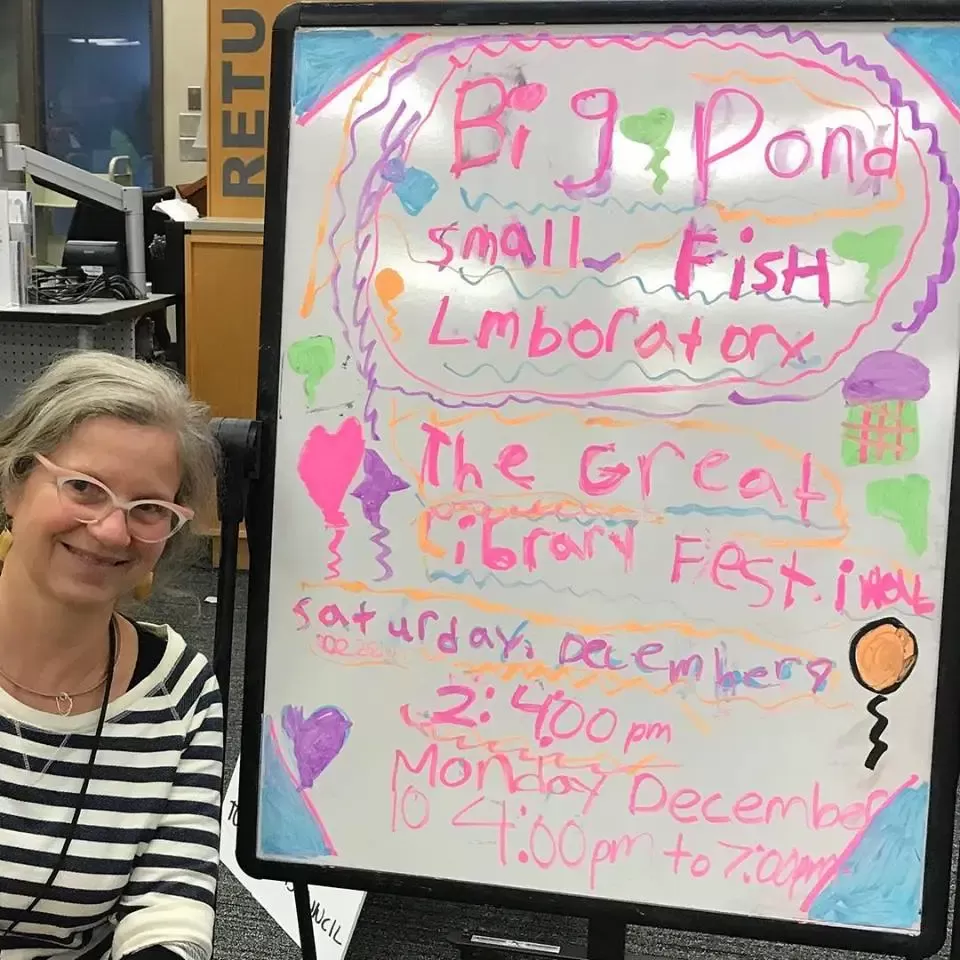 RETU
Big Pond
small Fish
Lmboratory
The Great
Library Festival
saturday, December 8
2: 4:00 pm
Monday December
10 4:00pm to 7:00pm
NCIL